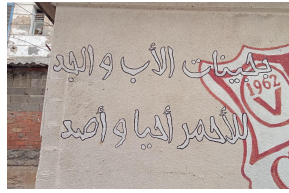 بجينات الأب و الجد
للأحمر أحيا و أصد
1962
V